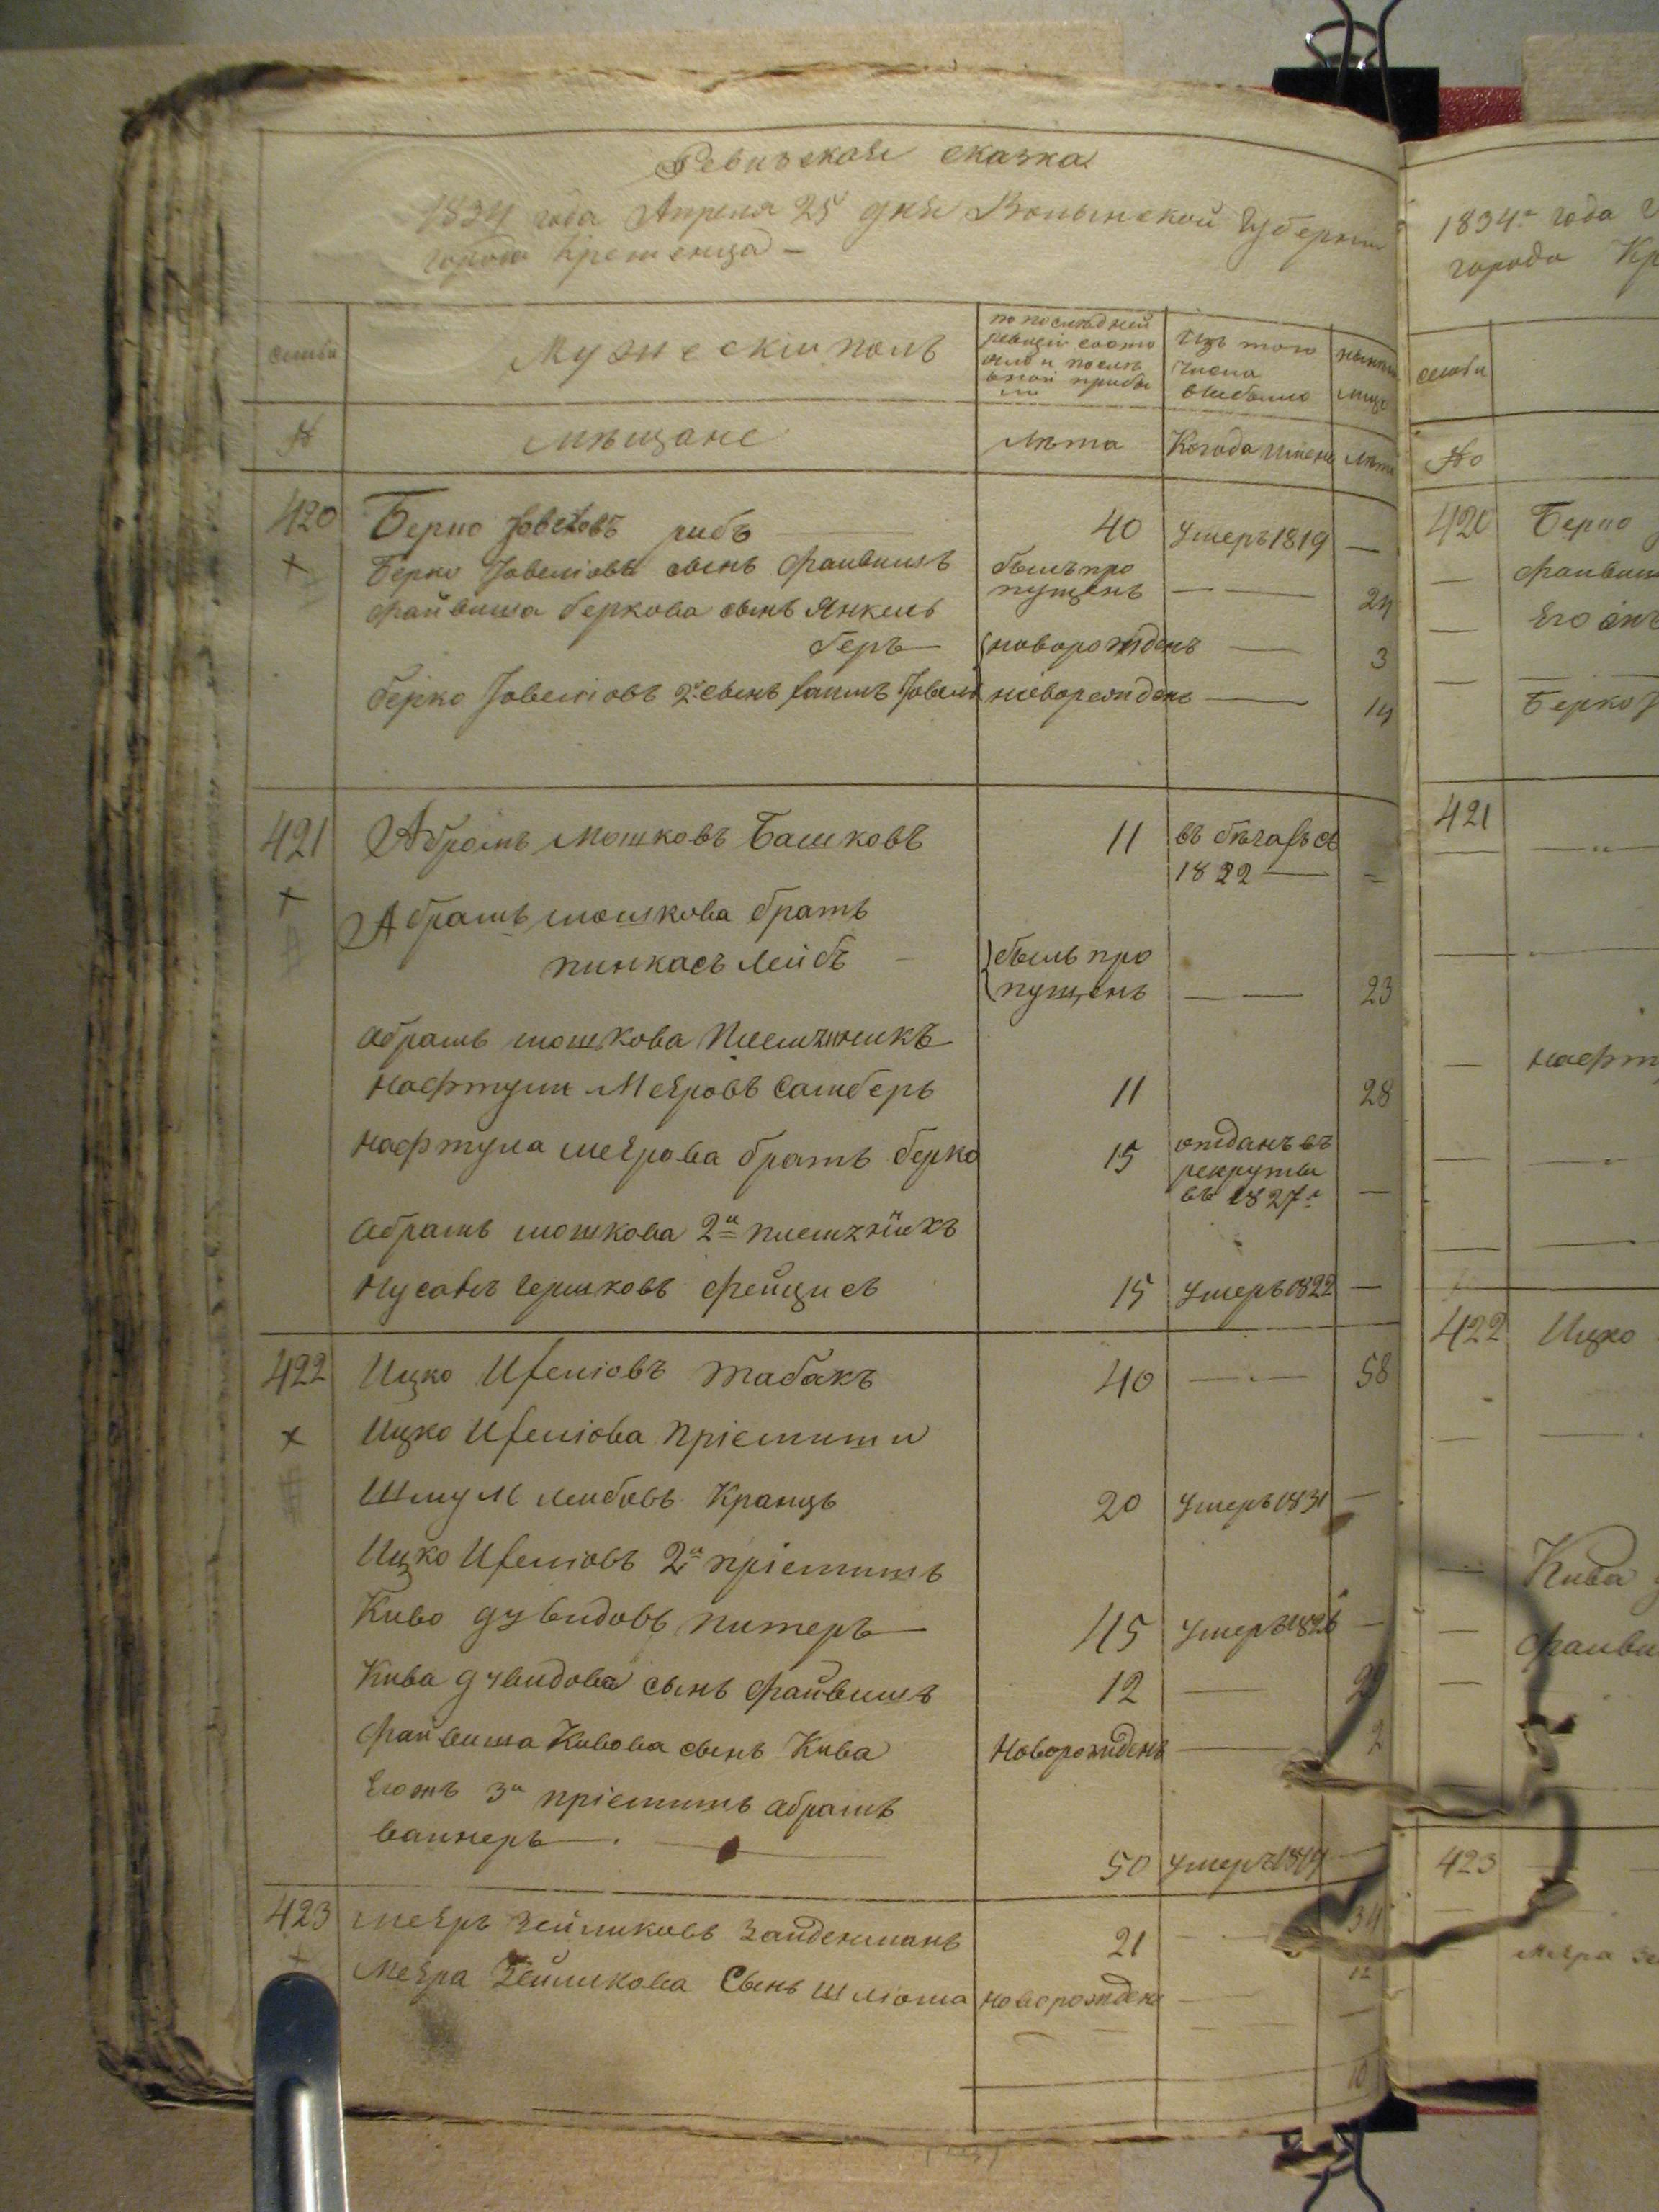 Ревизская сказка
1834 года Апреля 25 дня Волынской Губернии
города Кременца —
семьи
Мужескiй полъ
по последней ревизiи состояло и после оной прибыло
Изъ того числа выбыло
ныне лицо
№
мѣщане
Лѣта
Когода имено
лѣта
420 Берко Iовелiовъ рибъ — 40 Умеръ 1819 —
Берко Iовелiовъ сынъ Файвишъ былъ про
пущенъ — — 24
Файвиша беркова сынъ Янкель
беръ — новорожденъ — 3
берко Iовелiовъ 2й сынъ Iовель новорожденъ — 14
421 Абрамъ Мошковъ Башковъ 11 въ бѣгахъ съ
1822 — —
Абрамъ мошкова братъ
пинкасъ Лейбъ — былъ про
пущенъ — — 23
Абрамъ мошкова Племянникъ
Нафтули Меяровъ Самберъ 11 28
Нафтула меярова братъ берко 15 отданъ въ
рекруты
въ 1827г —
Абрамъ мошкова 2й племянникъ
Нусанъ гершковъ фейцисъ 15 Умеръ 1822 —
422 Ицко Иселiовъ табакъ 40 — 58
Ицко Иселiова прiемиши
Шмуль лейбовъ Кранцъ 20 Умеръ 1831 —
Ицко Иселiовъ 2й прiемишъ
Киво дувидовъ питеръ — 45 Умеръ 1826 —
Кива дувидова сынъ файвишъ 12 — 29
файвиша Кивова сынъ Кива Новорожденъ — 2
Егожъ 3й прiемишъ абрамъ
ваинеръ — 50 Умеръ 1819 —
423 меяръ Зейликовъ Зайденманъ 21 — 34
Меяра Зейликова Сынъ шлiома новорожденъ — 12
10
1834г года
города Кр
семьи
№
420 Берко
Файвиш
Его
Берко
421
нафт
422 Ицко
Кива
файви
423
меяра Зе